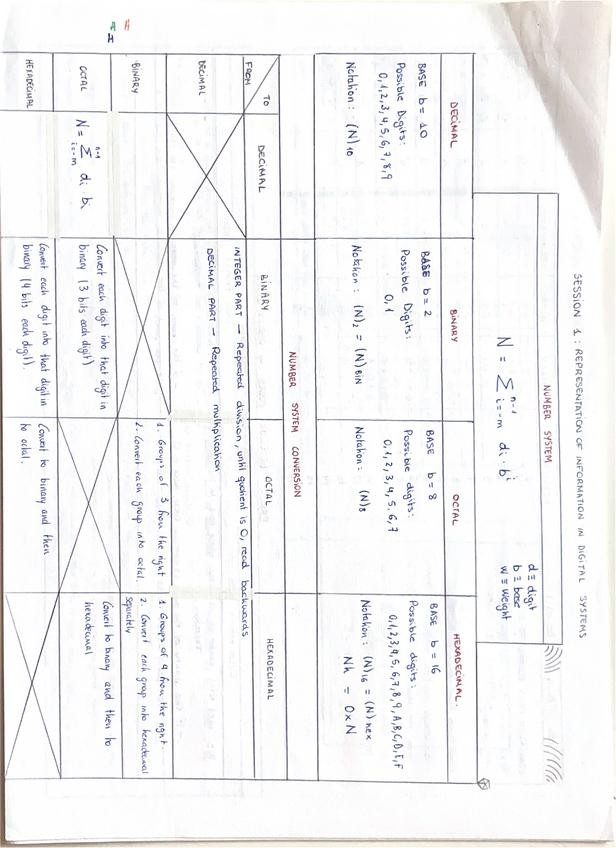 SESSION 1: REPRESENTATION OF INFORMATION IN DIGITAL SYSTEMS
NUMBER SYSTEM
N = Σ di · bⁱ
n-1
i=-m
d ≡ digit
b ≡ base
w ≡ weight
DECIMAL
BASE b = 10
Possible Digits:
0,1,2,3,4,5,6,7,8,9
Notation: (N)10
BINARY
BASE b = 2
Possible Digits:
0,1
Notation: (N)2 = (N)BIN
OCTAL
BASE b = 8
Possible digits:
0,1,2,3,4,5,6,7
Notation: (N)8
HEXADECIMAL.
BASE b = 16
Possible digits:
0,1,2,3,4,5,6,7,8,9,A,B,C,D,E,F
Notation: (N)16 = (N)HEX
Nh = 0xN
NUMBER SYSTEM CONVERSION
FROM TO
DECIMAL
BINARY
OCTAL
HEXADECIMAL
DECIMAL
INTEGER PART → Repeated division, until quotient is 0, read backwards
DECIMAL PART → Repeated multiplication
BINARY
1. Groups of 3 from the right
2. Convert each group into octal.
1. Groups of 4 from the right.
2. Convert each group into hexadecimal
separately
OCTAL
N = Σ di · bi
n-1
i=-m
Convert each digit into that digit in
binary (3 bits each digit)
Convert to binary and then to
hexadecimal
HEXADECIMAL
Convert each digit into that digit in
binary (4 bits each digit).
Convert to binary and then
to octal.